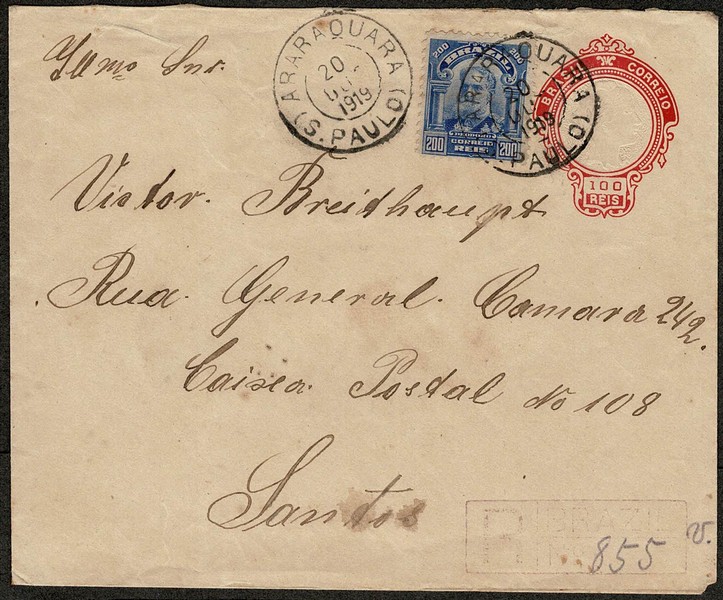 Illmo Snr.
ARARAQUARA
20
1919
(S. PAULO)
200 200
BRAZIL
CORREIO
200 REIS 200
QUARA
20
1919
PAULO)
BRASIL CORREIO
100
REIS
Victor. Breithaupt
Rua. General. Camara 242.
Caixa. Postal No 108
Santos
R BRAZIL
855 v.